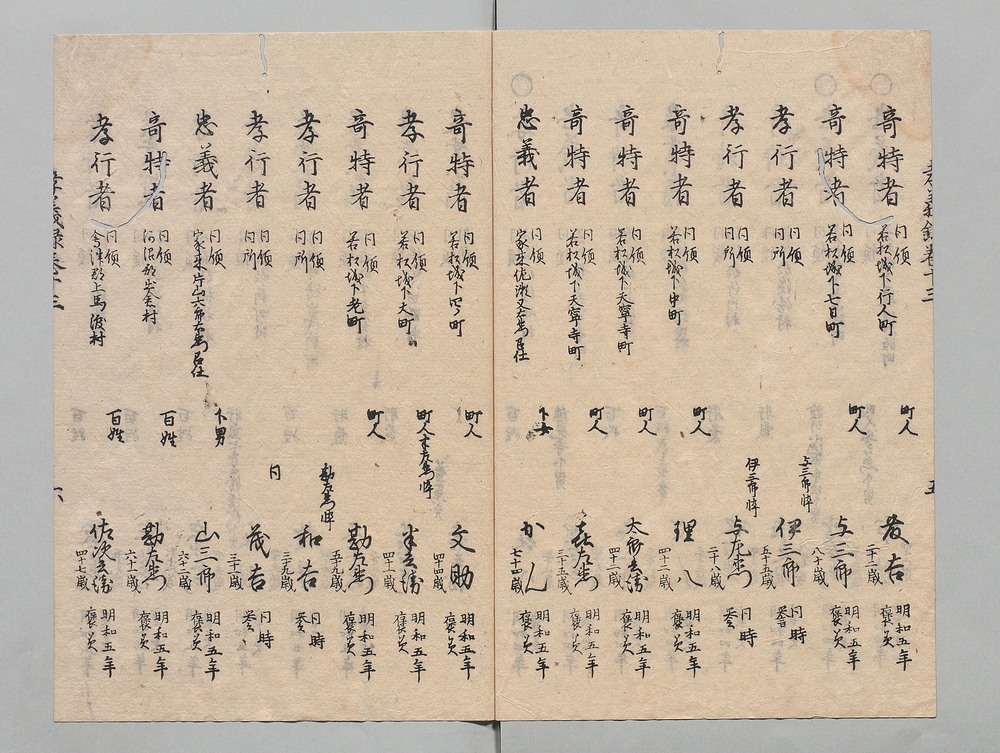 孝義録巻十三
奇特者 同領 若松城下行人町 町人 茂吉 二十二歳 明和五年 褒美
奇特者 同領 若松城下七日町 町人 与三郎 八十歳 明和五年 褒美
孝行者 同領 同所 与三郎悴 伊三郎 五十五歳 同時 褒美
孝行者 同領 同所 伊三郎悴 与左衛門 二十八歳 同時 褒美
奇特者 同領 若松城下中町 町人 理八 四十二歳 明和五年 褒美
奇特者 同領 若松城下天寧寺町 町人 太郎兵衛 四十二歳 明和五年 褒美
奇特者 同領 若松城下天寧寺町 町人 喜左衛門 三十五歳 明和五年 褒美
忠義者 同領 家来佐瀬又左衛門召仕 下女 かん 七十四歳 明和五年 褒美
五
奇特者 同領 若松城下四ノ町 町人 文助 四十四歳 明和五年 褒美
孝行者 同領 若松城下大町 町人半左衛門悴 半兵衛 四十一歳 明和五年 褒美
奇特者 同領 若松城下老町 町人 勘左衛門 五十九歳 明和五年 褒美
孝行者 同領 同所 勘左衛門悴 和吉 三十九歳 同時 褒美
孝行者 同領 同所 同 茂吉 三十歳 同時 褒美
忠義者 同領 家来片山六郎左衛門召仕 下男 山三郎 六十二歳 明和五年 褒美
奇特者 同領 河沼郡 村 百姓 勘左衛門 六十歳 明和五年 褒美
孝行者 同領 会津郡上馬渡村 百姓 佐次兵衛 四十七歳 明和五年 褒美
孝義録巻十三
六